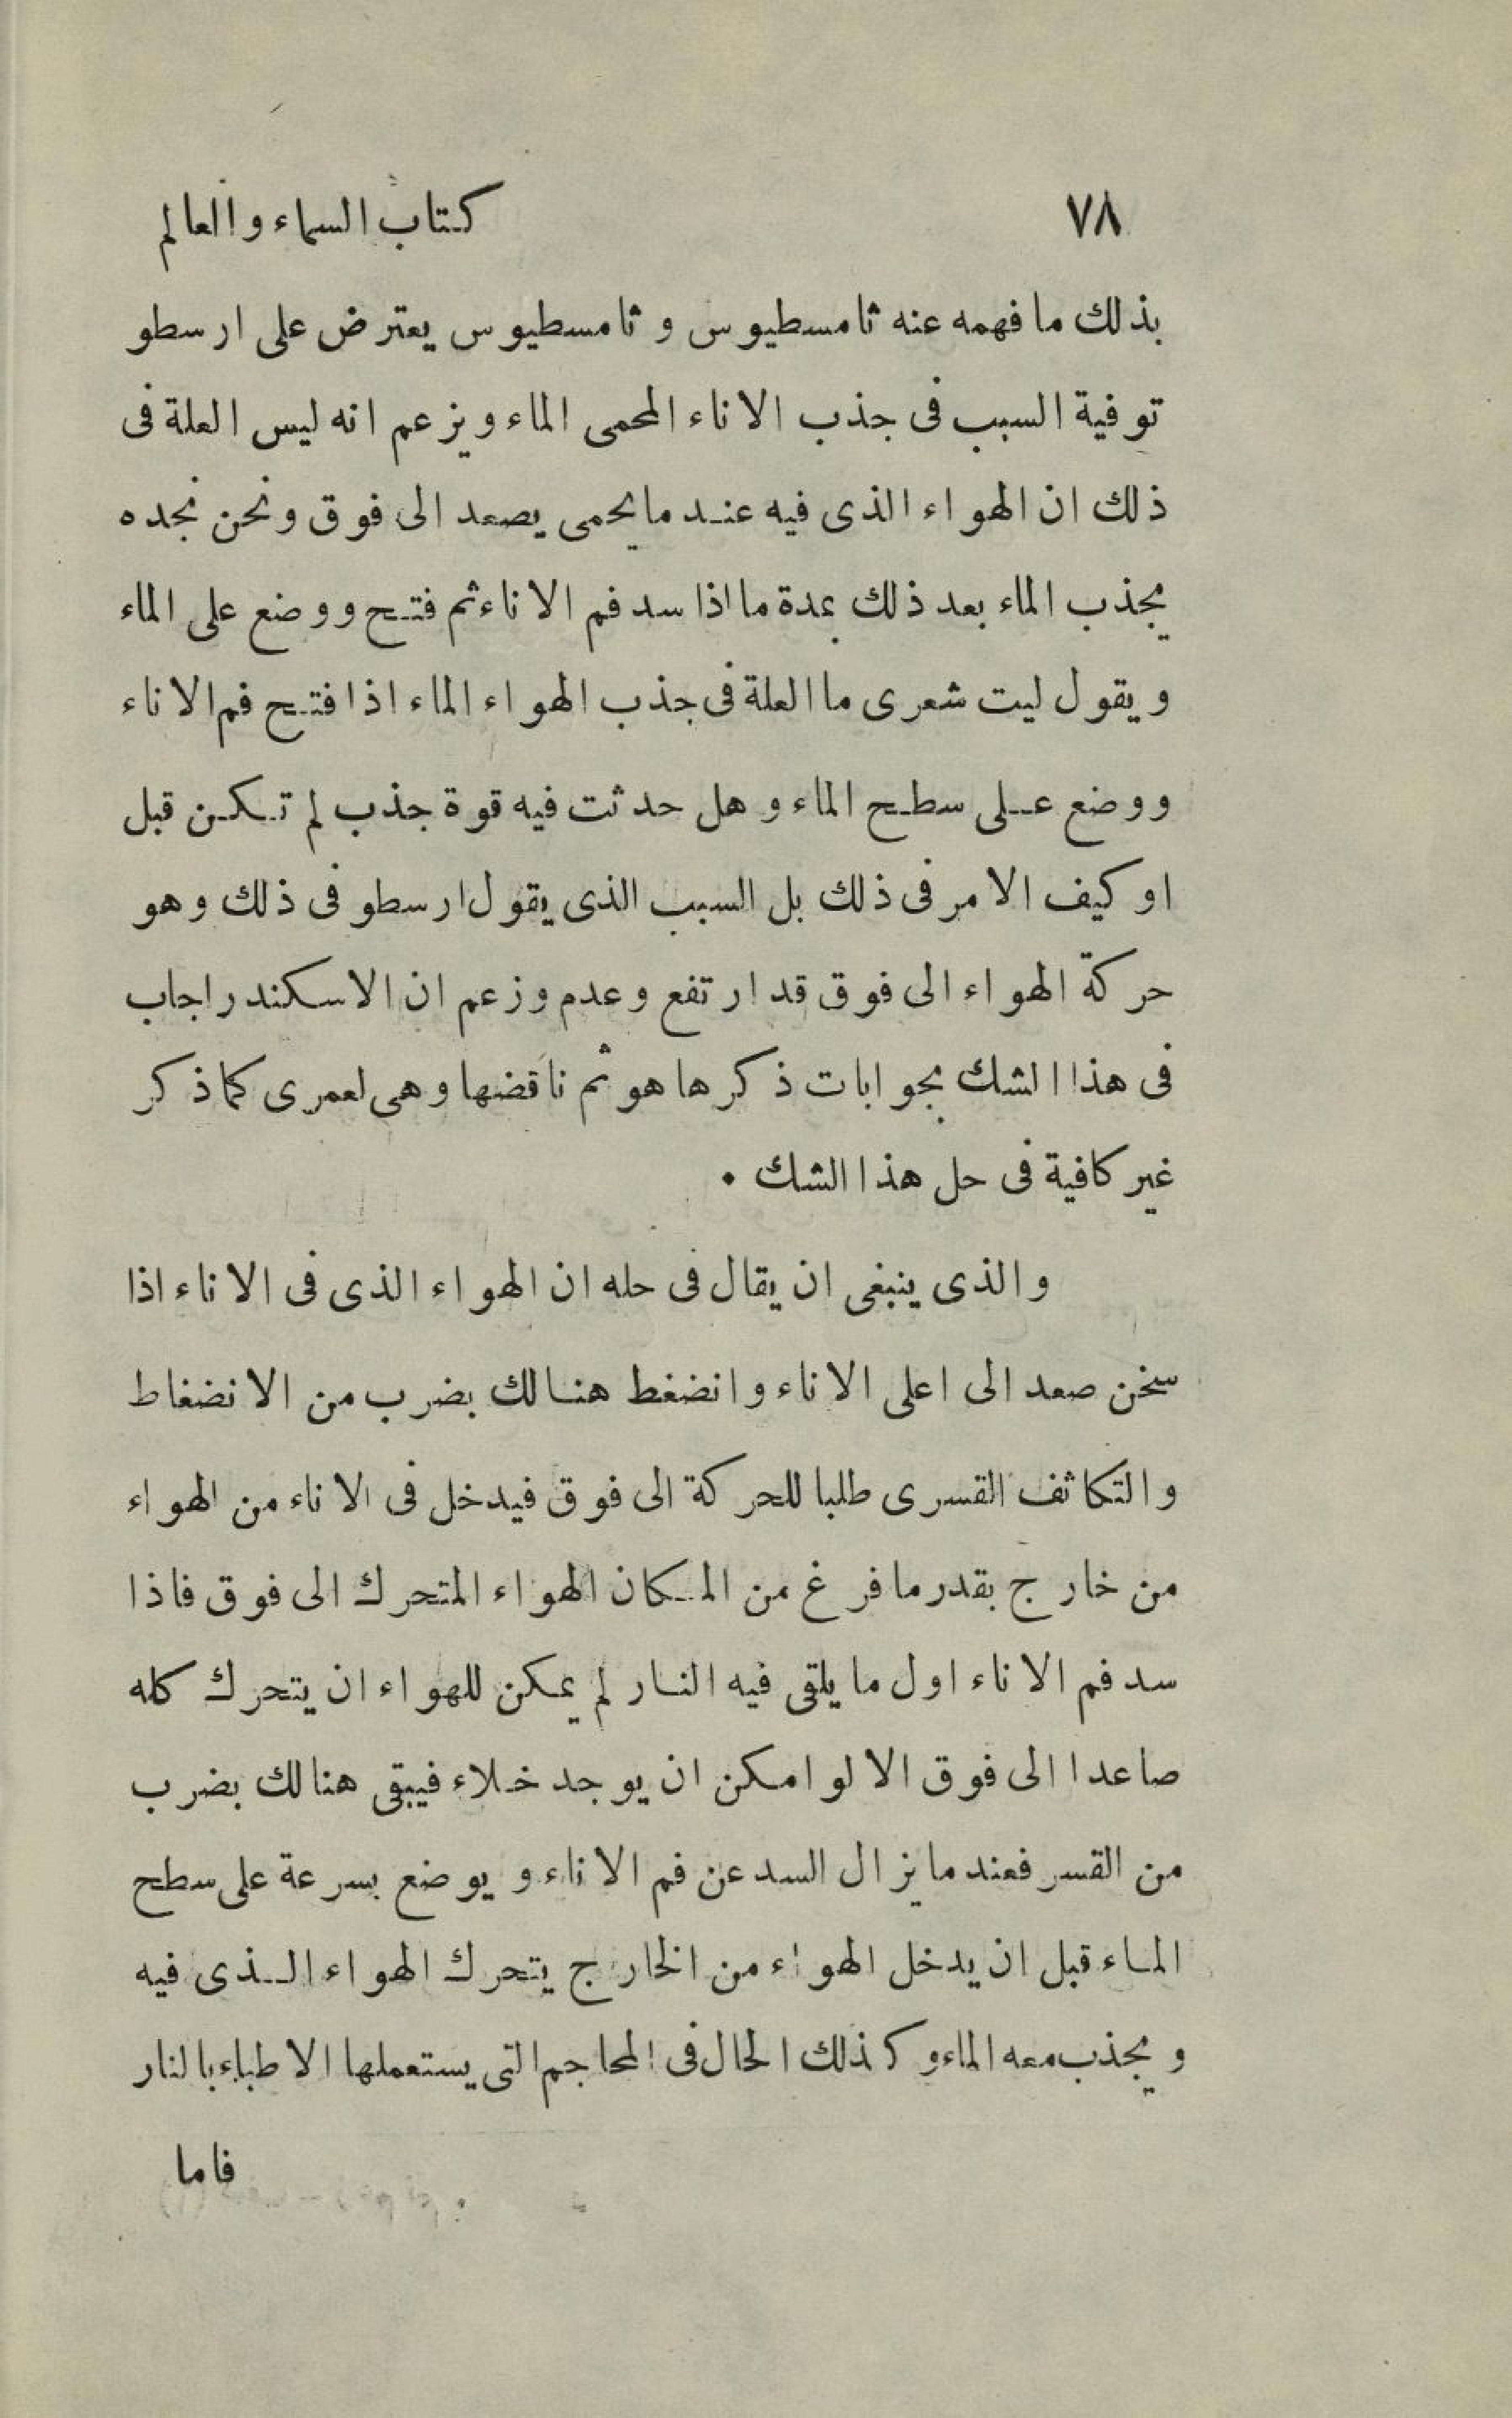 ٧٨ كتاب السماء والعالم
بذلك ما فهمه عنه ثامسطيوس و ثامسطيوس يعترض على ارسطو
توفية السبب فى جذب الاناء المحمى الماء ويزعم انه ليس العلة فى
ذلك ان الهواء الذى فيه عند ما يحمى يصعد الى فوق ونحن نجده
يجذب الماء بعد ذلك بمدة ما اذا سد فم الاناء ثم فتح ووضع على الماء
ويقول ليت شعرى ما العلة فى جذب الهواء الماء اذا فتح فم الاناء
ووضع على سطح الماء وهل حدثت فيه قوة جذب لم تكن قبل
او كيف الامر فى ذلك بل السبب الذى يقول ارسطو فى ذلك وهو
حركة الهواء الى فوق قد ارتفع وعدم وزعم ان الاسكندر اجاب
فى هذا الشك بجوابات ذكرها هو ثم ناقضها وهى لعمرى كما ذكر
غير كافية فى حل هذا الشك ٠
والذى ينبغى ان يقال فى حله ان الهواء الذى فى الاناء اذا
سخن صعد الى اعلى الاناء وانضغط هنالك بضرب من الانضغاط
والتكاثف القسرى طلبا للحركة الى فوق فيدخل فى الاناء من الهواء
من خارج بقدر ما فرغ من المكان الهواء المتحرك الى فوق فاذا
سد فم الاناء اول ما يلقى فيه النار لم يمكن للهواء ان يتحرك كله
صاعدا الى فوق الا لو امكن ان يوجد خلاء فيبقى هنالك بضرب
من القسر فعند ما يزال السد عن فم الاناء و يوضع بسرعة على سطح
الماء قبل ان يدخل الهواء من الخارج يتحرك الهواء الذى فيه
ويجذب معه الماء وكذلك الحال فى المحاجم التى يستعملها الاطباء بالنار
فاما